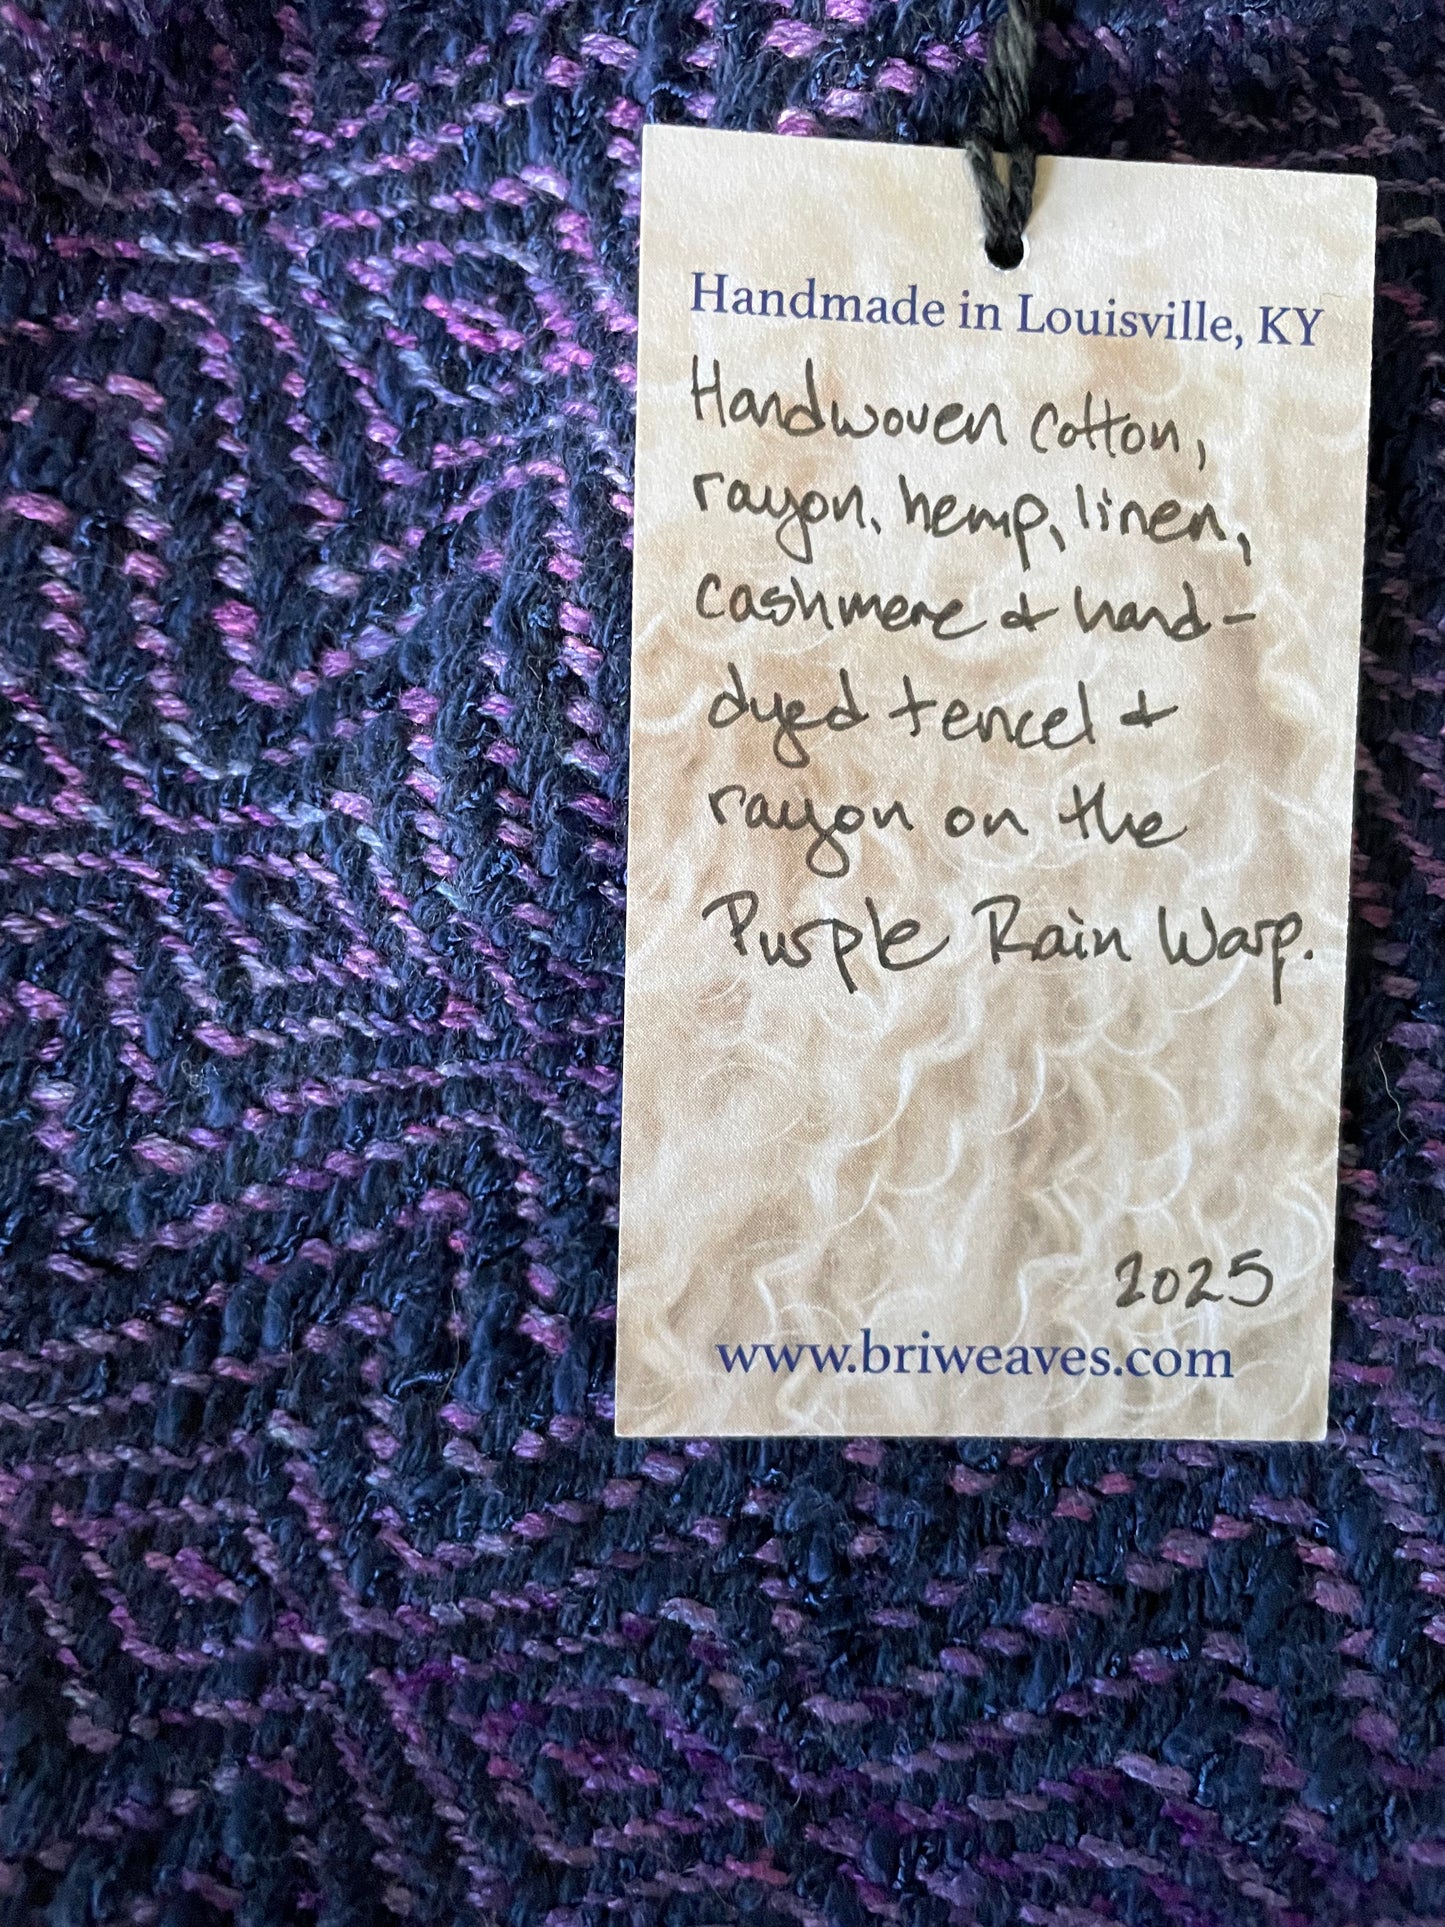 Handmade in Louisville, KY
Handwoven cotton,
rayon, hemp, linen,
cashmere & hand-
dyed tencel &
rayon on the
Purple Rain Warp.
2025
www.briweaves.com